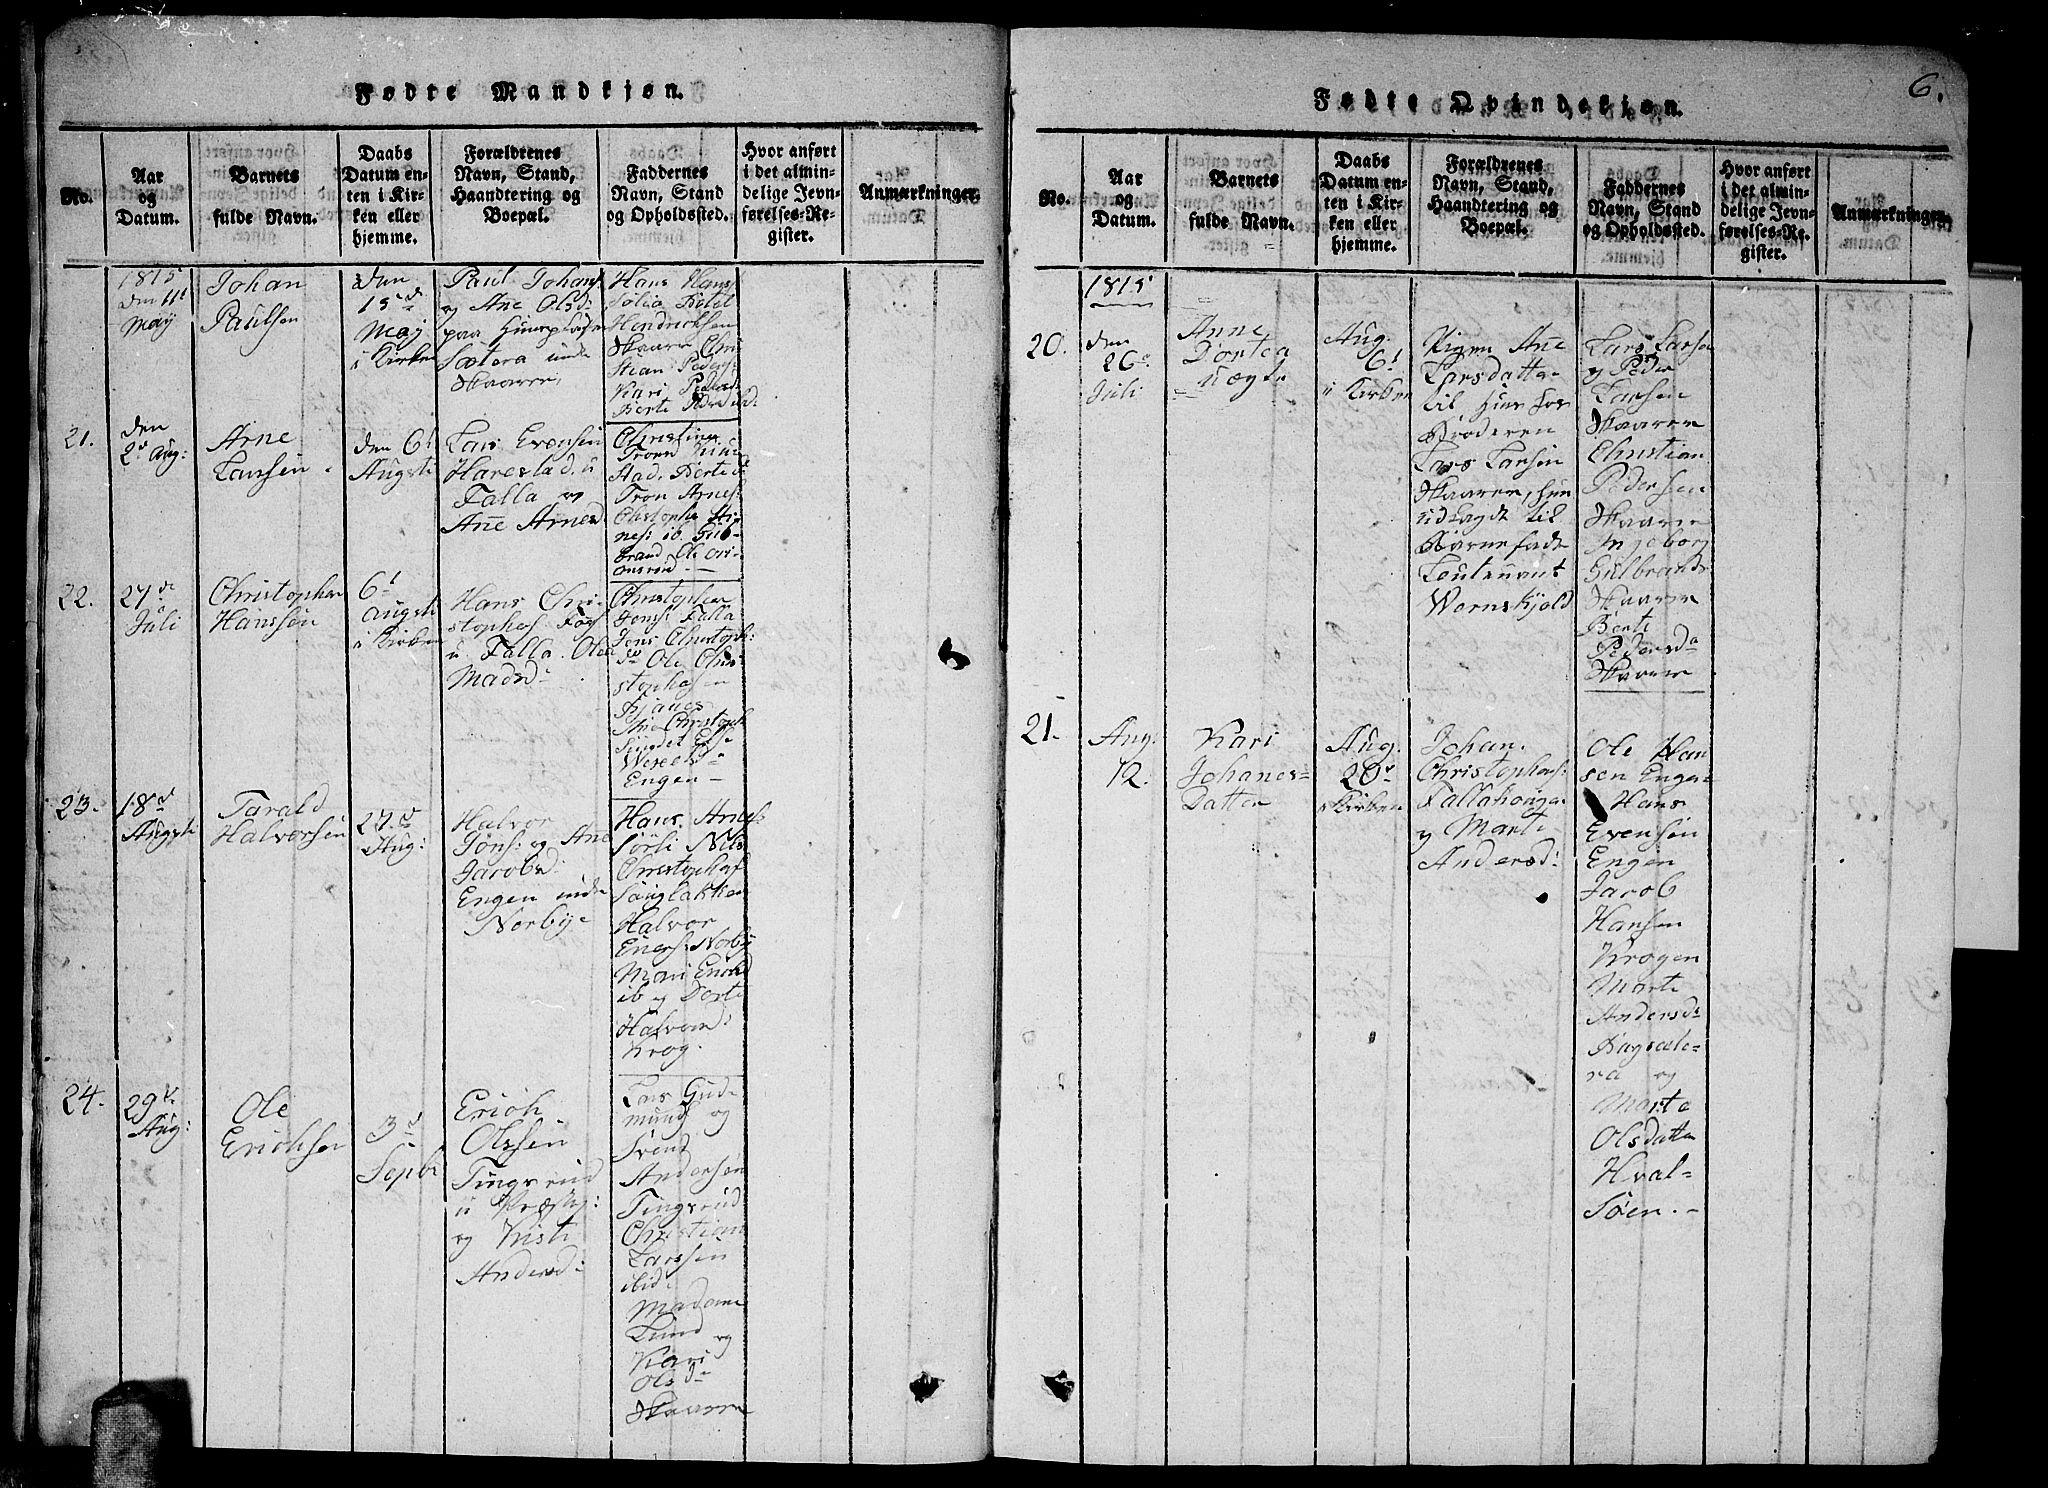 Fødte Mandkjøn.
No.
Aar
og
Datum.
Barnets
fulde Navn.
Daabs
Datum en-
ten i Kir-
ken eller
hjemme.
Forældrenes
Navn, Stand,
Haandtering og
Boepæl.
Faddernes
Navn, Stand
og Opholdssted.
Hvor anført
i det almin-
delige Jevn-
førelses-Re-
gister.
Anmærkninger.
1815
den 11t
May
Johan
Paulsen
den
15d
May
i Kirken
Paul Johans
og Ane Olsd:
paa
Sætera unde
Skaarer
Hans Hans
Ketel
Hendricksen
Skaarer Chri
stian Peders
Kari Pedersd
Berte Pedersd
21.
den
2d Aug:
Arne
Larssen
den 6t
Augsti
Lars Evensen
Harestad u
Falla og
Ane Arnesd
Christine
Berte
Tron Arnes:
Christopher
Gul-
brand Ole
22.
27de
Juli
Christopher
Hanssen
6t
Augsti
i Kirken
Hans Chri-
stophers
u. Falla. Olea
Madsd:
Christopher
Jens: Falla
Jens Christoph:
Ole Chri-
stophersen
Christoph
Else
Engen
23.
18d
Augsti
Tarald
Halvorsen
27d
Aug:
Halvor
Jons: og Ane
Jacobsd:
Engen unde
Norbye
Hans Arnes:
Sörli Nils
Christophers
Halvor
Eners: Norby
Mari
ib og Dorte
Halvorsd:
Krog.
24.
29de
Aug:
Ole
Ericksen
3d
Septbr
Erich
Olssen
Tingsrud
u Præsteg:
og Kisti
Andersd:
Lars Gud-
munds og
Svend
Andersen
Tingsrud
Christian
Larssen
ibid:
Madame
Lund og
Kari
Olsda
Skaarer
6.
Fødte Qvindekjøn.
No.
Aar
og
Datum.
Barnets
fulde Navn.
Daabs
Datum en-
ten i Kir-
ken eller
hjemme.
Forældrenes
Navn, Stand,
Haandtering og
Boepæl.
Faddernes
Navn, Stand
og Opholdssted.
Hvor anført
i det almin-
delige Jevn-
førelses-Re-
gister.
Anmærkninger.
1815
20.
den
26de
Juli
Anne
Dortea
uægte
Aug.
6t
i Kirken
Pigen Ane
Larsdatter
til Huus hos
Broderen
Lars Larsen
Skaarer, hun
udlagde til
Barnefader
Leutenant
Wernskjold
Lars Larsen
og Peder
Larsen
Skaarer
Christian
Pedersen
Skaarer
Ingeborg
Gulbrands
Skaarer
Berte
Pedersda
Skaarer
21.
Aug.
12.
Kari
Johanes-
Datter
Aug.
20d
i Kirken
Johan.
Christophers:
Fallahouge
og Marte
Andersd:
Ole Han
sen Engen
Hans
Evensen
Engen
Jacob
Hansen
Krogen
Marte
Andersd:
Bagsæte-
ra og
Marte
Olsdatter
Hval-
Søen.